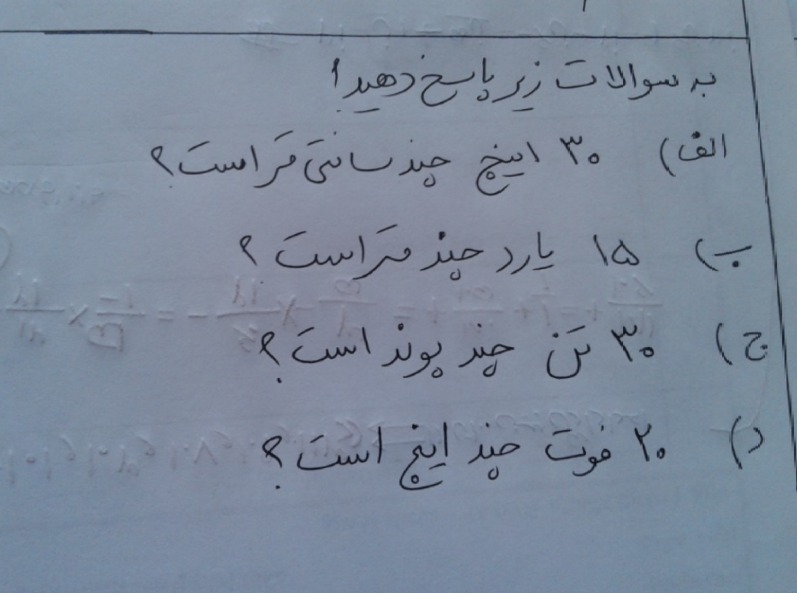 به سوالات زیر پاسخ دهید!
الف) ۳۰ اینچ چند سانتی متر است؟
ب) ۱۵ یارد چند متر است؟
ج) ۳۰ تن چند پوند است؟
د) ۲۰ فوت چند اینچ است؟